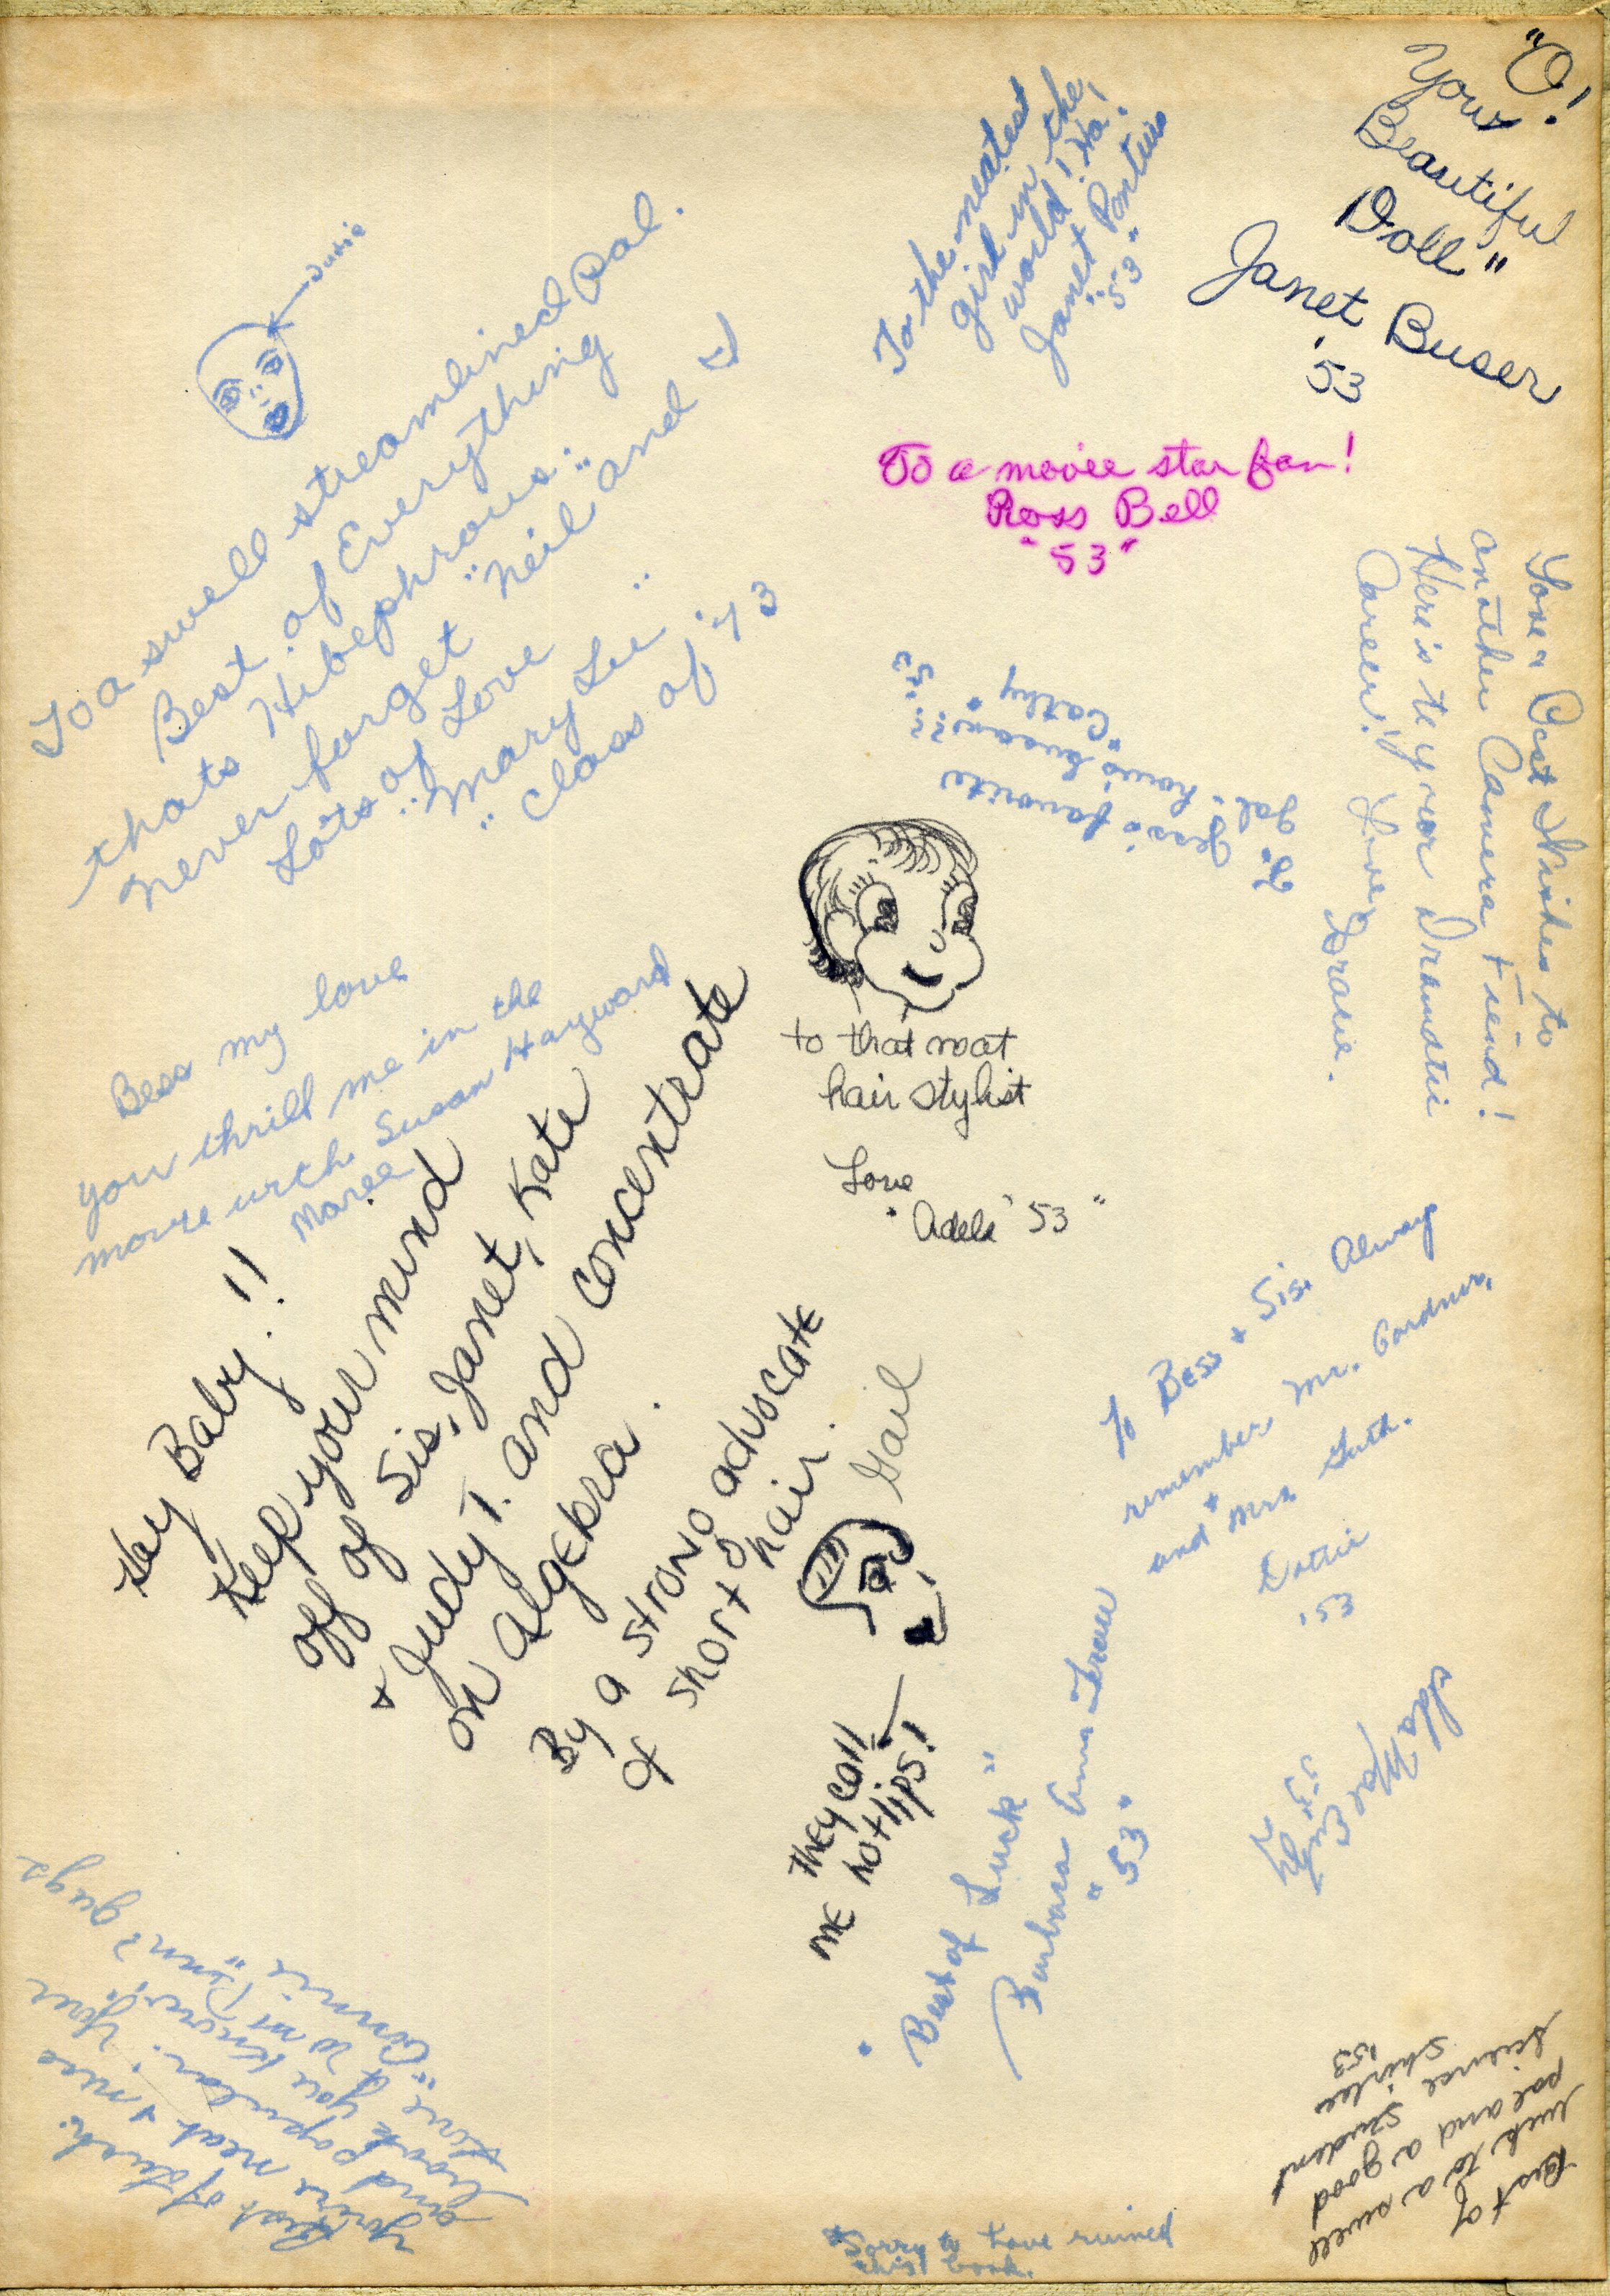 "O!
You
Beautiful
Doll"
Janet Buser
'53
To the neatest
girl in the
world! Ha!
Janet Pontius
"53"
To a movie star fan!
Ross Bell
"53"
To a swell streamlined pal.
Best of Everything
thats
never forget "Neil" and
Lots of Love
"Mary Lu"
"Class of '53
Love & Best Wishes to
another Camera Fiend!
Here's to your Dramatic
Career! Love,
To Bess's favorite
gal. how's Susan???
"Cathy" '53
to that neat
hair stylist
Love
"Adele '53"
Bess my love
you thrill me in the
movie with Susan Hayward
Maree
Hey Baby!!
Keep your mind
off of Sis, Janet, Kate
+ Judy T. and concentrate
on algebra.
By a strong advocate
of short hair.
Gail
They call
me hotlips!
To Bess + Sis. Always
remember Mr. Gardner,
and + Mrs Guth.
Dottie
'53
"Best of Luck"
Barbara Ann
"53"
Ida Mae
'53
Best of Luck.
You're neat + nice
and popular. Your
have
if you know
Annie
guys
Best of
luck to a swell
pal and a good
science student
Shirlee
'53
*Sorry to have ruined
this book.